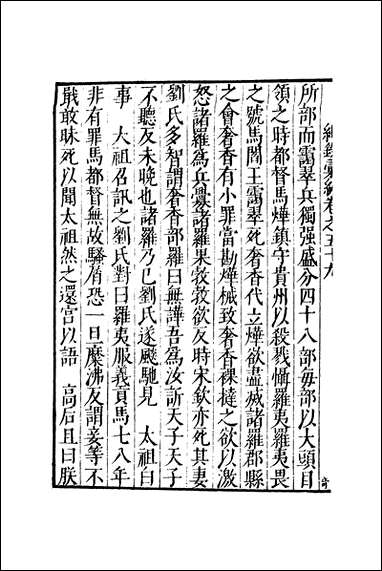 續藏書卷之五十九
所部而靄翠兵獨强盛分四十八部每部以大頭目
領之時都督馬燁鎮守貴州以殺戮懾羅夷羅夷畏
之號馬閻王靄翠死奢香代立燁欲盡滅諸羅郡縣
之會奢香有小罪當勘燁械致奢香裸撻之欲以激
怒諸羅為兵釁諸羅果欲反時宋欽亦死其妻
劉氏多智謂奢香部羅曰無譁吾為汝訴天子天子
不聽反未晚也諸羅乃已劉氏遂颷馳見 太祖白
事 大祖召訊之劉氏對曰羅夷服義貢馬七八年
非有罪馬都督無故騷屑恐一旦糜沸反謂妾等不
戢敢昧死以聞太祖然之還宮以語 高后且曰朕